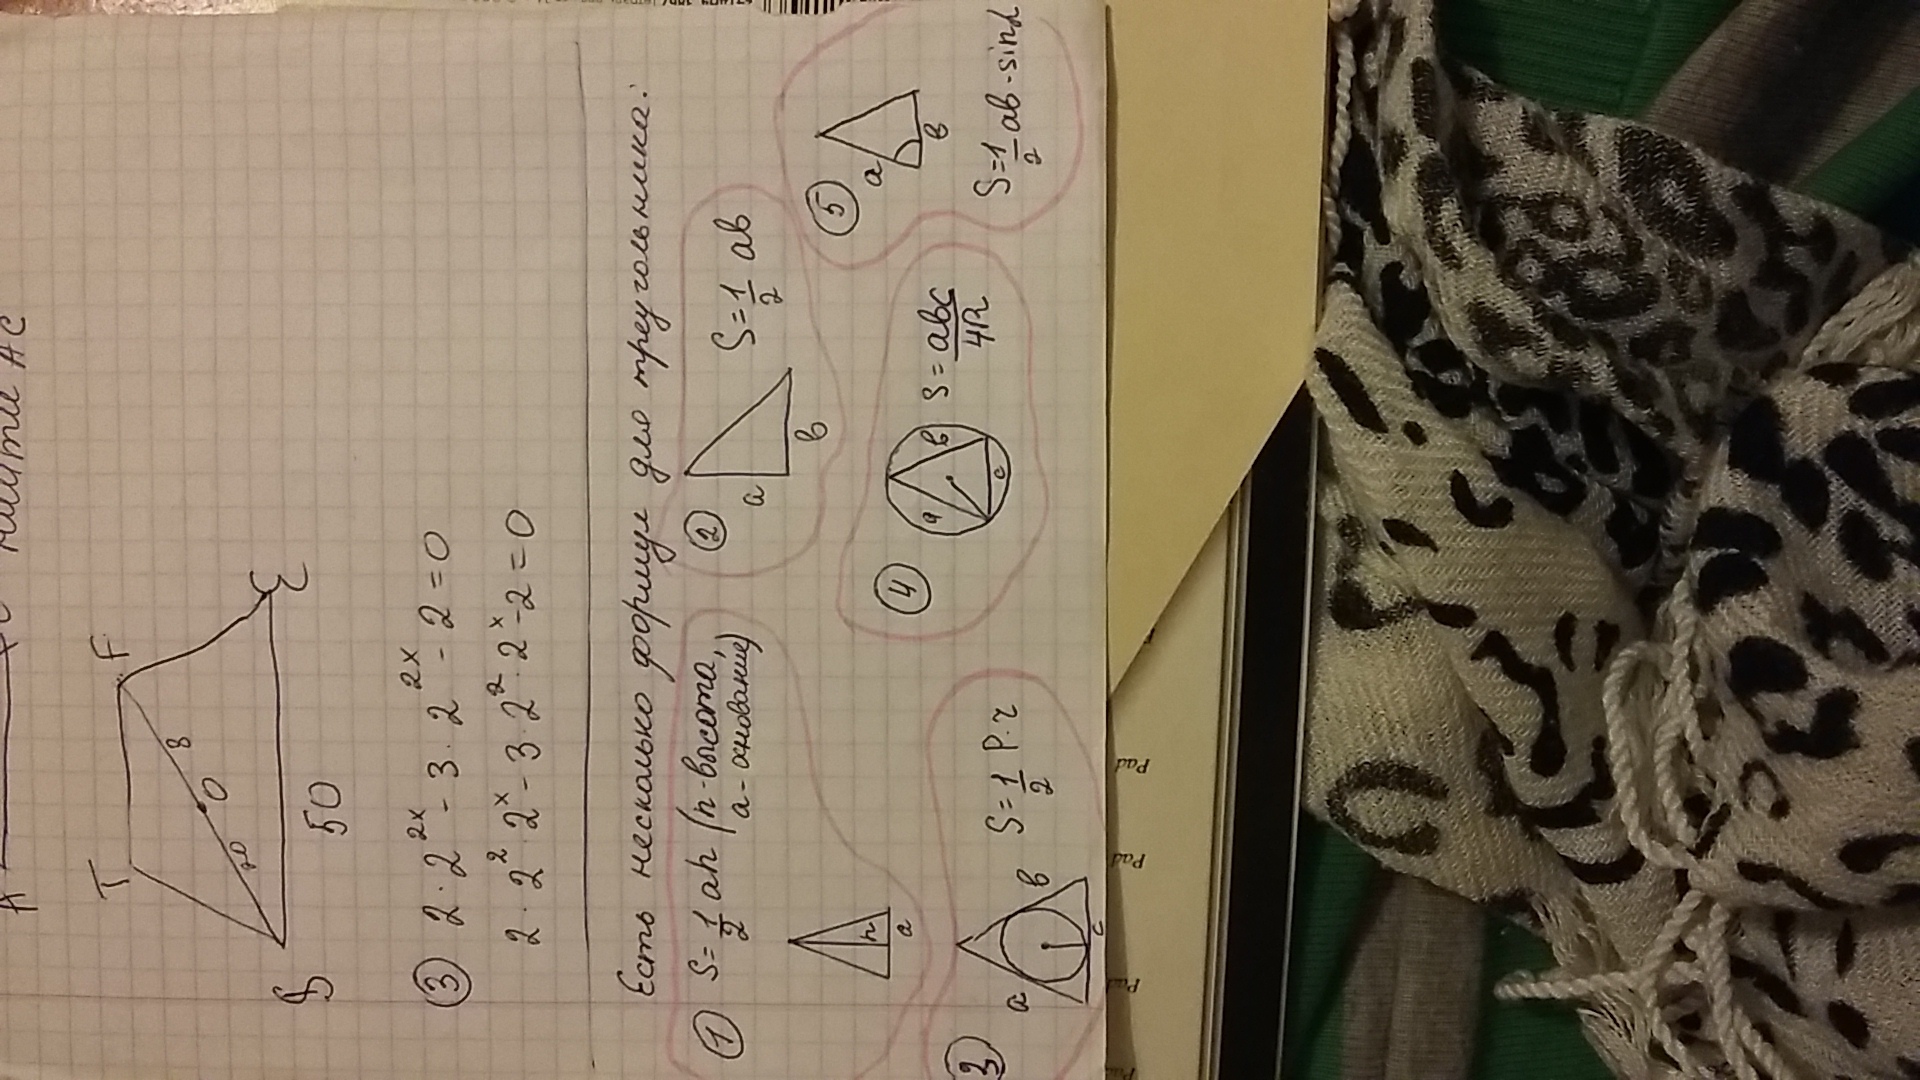 найти AC
T
F
8
O
20
S
E
50
③ 2 · 2^2x - 3 · 2^2x - 2 = 0
2 · 2^2 · 2^x - 3 · 2^2 · 2^x - 2 = 0
Есть несколько формул для треугольника:
① S = 1/2 ah (h - высота,
a - основание)
h
a
② S = 1/2 ab
a
b
3 S = 1/2 P · r
a
b
c
④ S = abc/4R
a
b
c
⑤
a
b
S = 1/2 ab · sin α
Pad
Pad
Pad
Pad